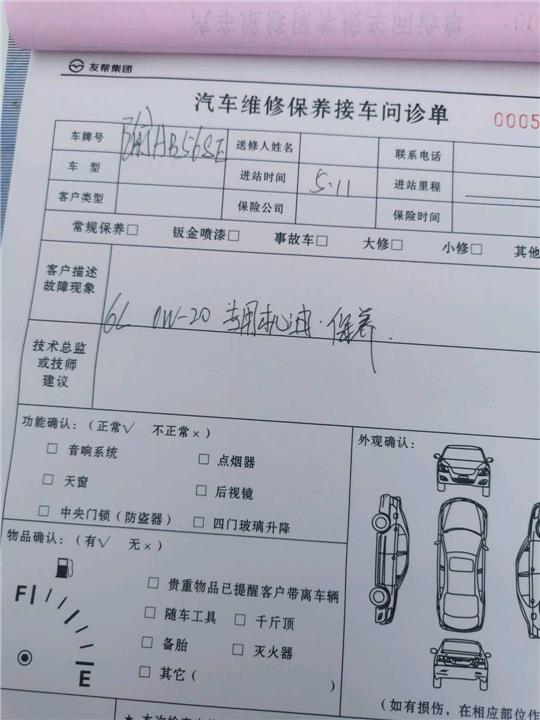 友帮集团
汽车维修保养接车问诊单
0005
车牌号 AB56SE 送修人姓名 联系电话
车型 进站时间 5.11 进站里程
客户类型 保险公司 保险时间
常规保养□ 钣金喷漆□ 事故车□ 大修□ 小修□ 其他
客户描述
故障现象
6L 0W-20 专用机油.保养.
技术总监
或技师
建议
功能确认：（正常√ 不正常×） 外观确认：
□ 音响系统 □ 点烟器
□ 天窗 □ 后视镜
□ 中央门锁（防盗器） □ 四门玻璃升降
物品确认：（有√ 无×）
□ 贵重物品已提醒客户带离车辆
F □ 随车工具 □ 千斤顶
□ 备胎 □ 灭火器
E □ 其它（ ）
（如有损伤，在相应部位作